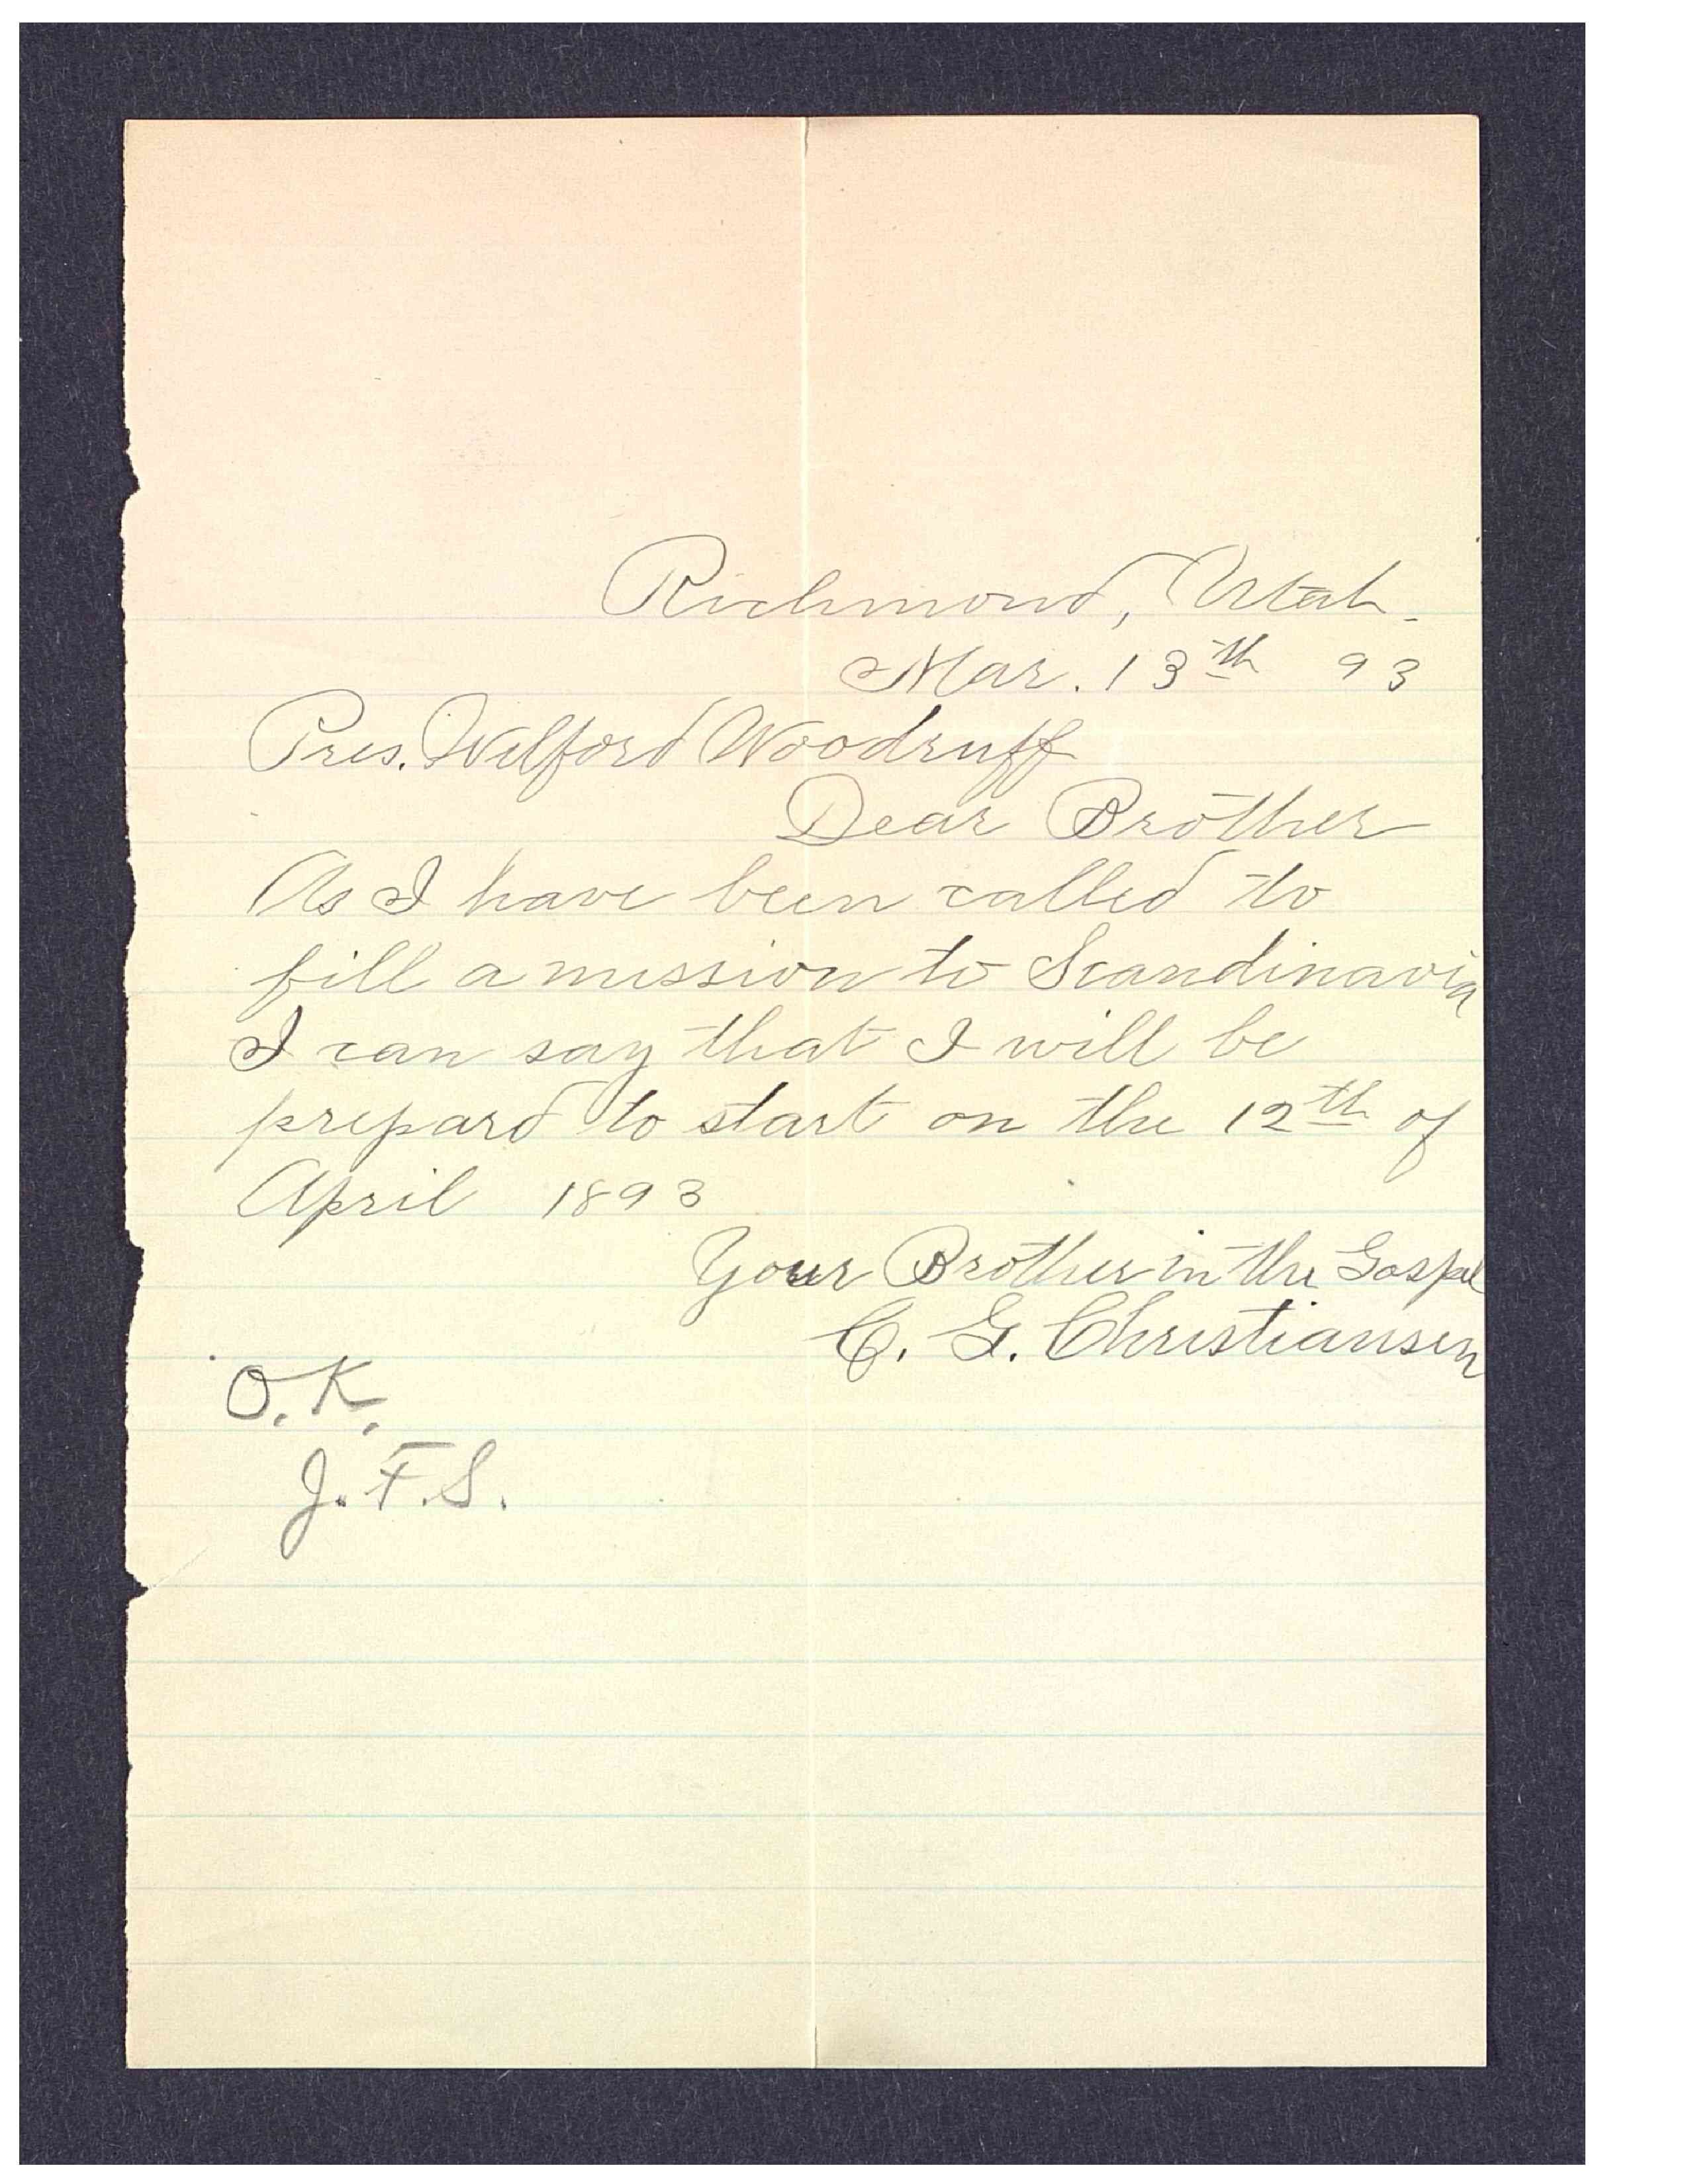 Richmond, Utah.
Mar. 13th 93
Pres. Wilford Woodruff
Dear Brother
As I have been called to
fill a mission to Scandinavia
I can say that I will be
prepard to start on the 12th of
April 1893
Your Brother in the Gospel
C. G. Christiansen
O.K.
J.F.S.